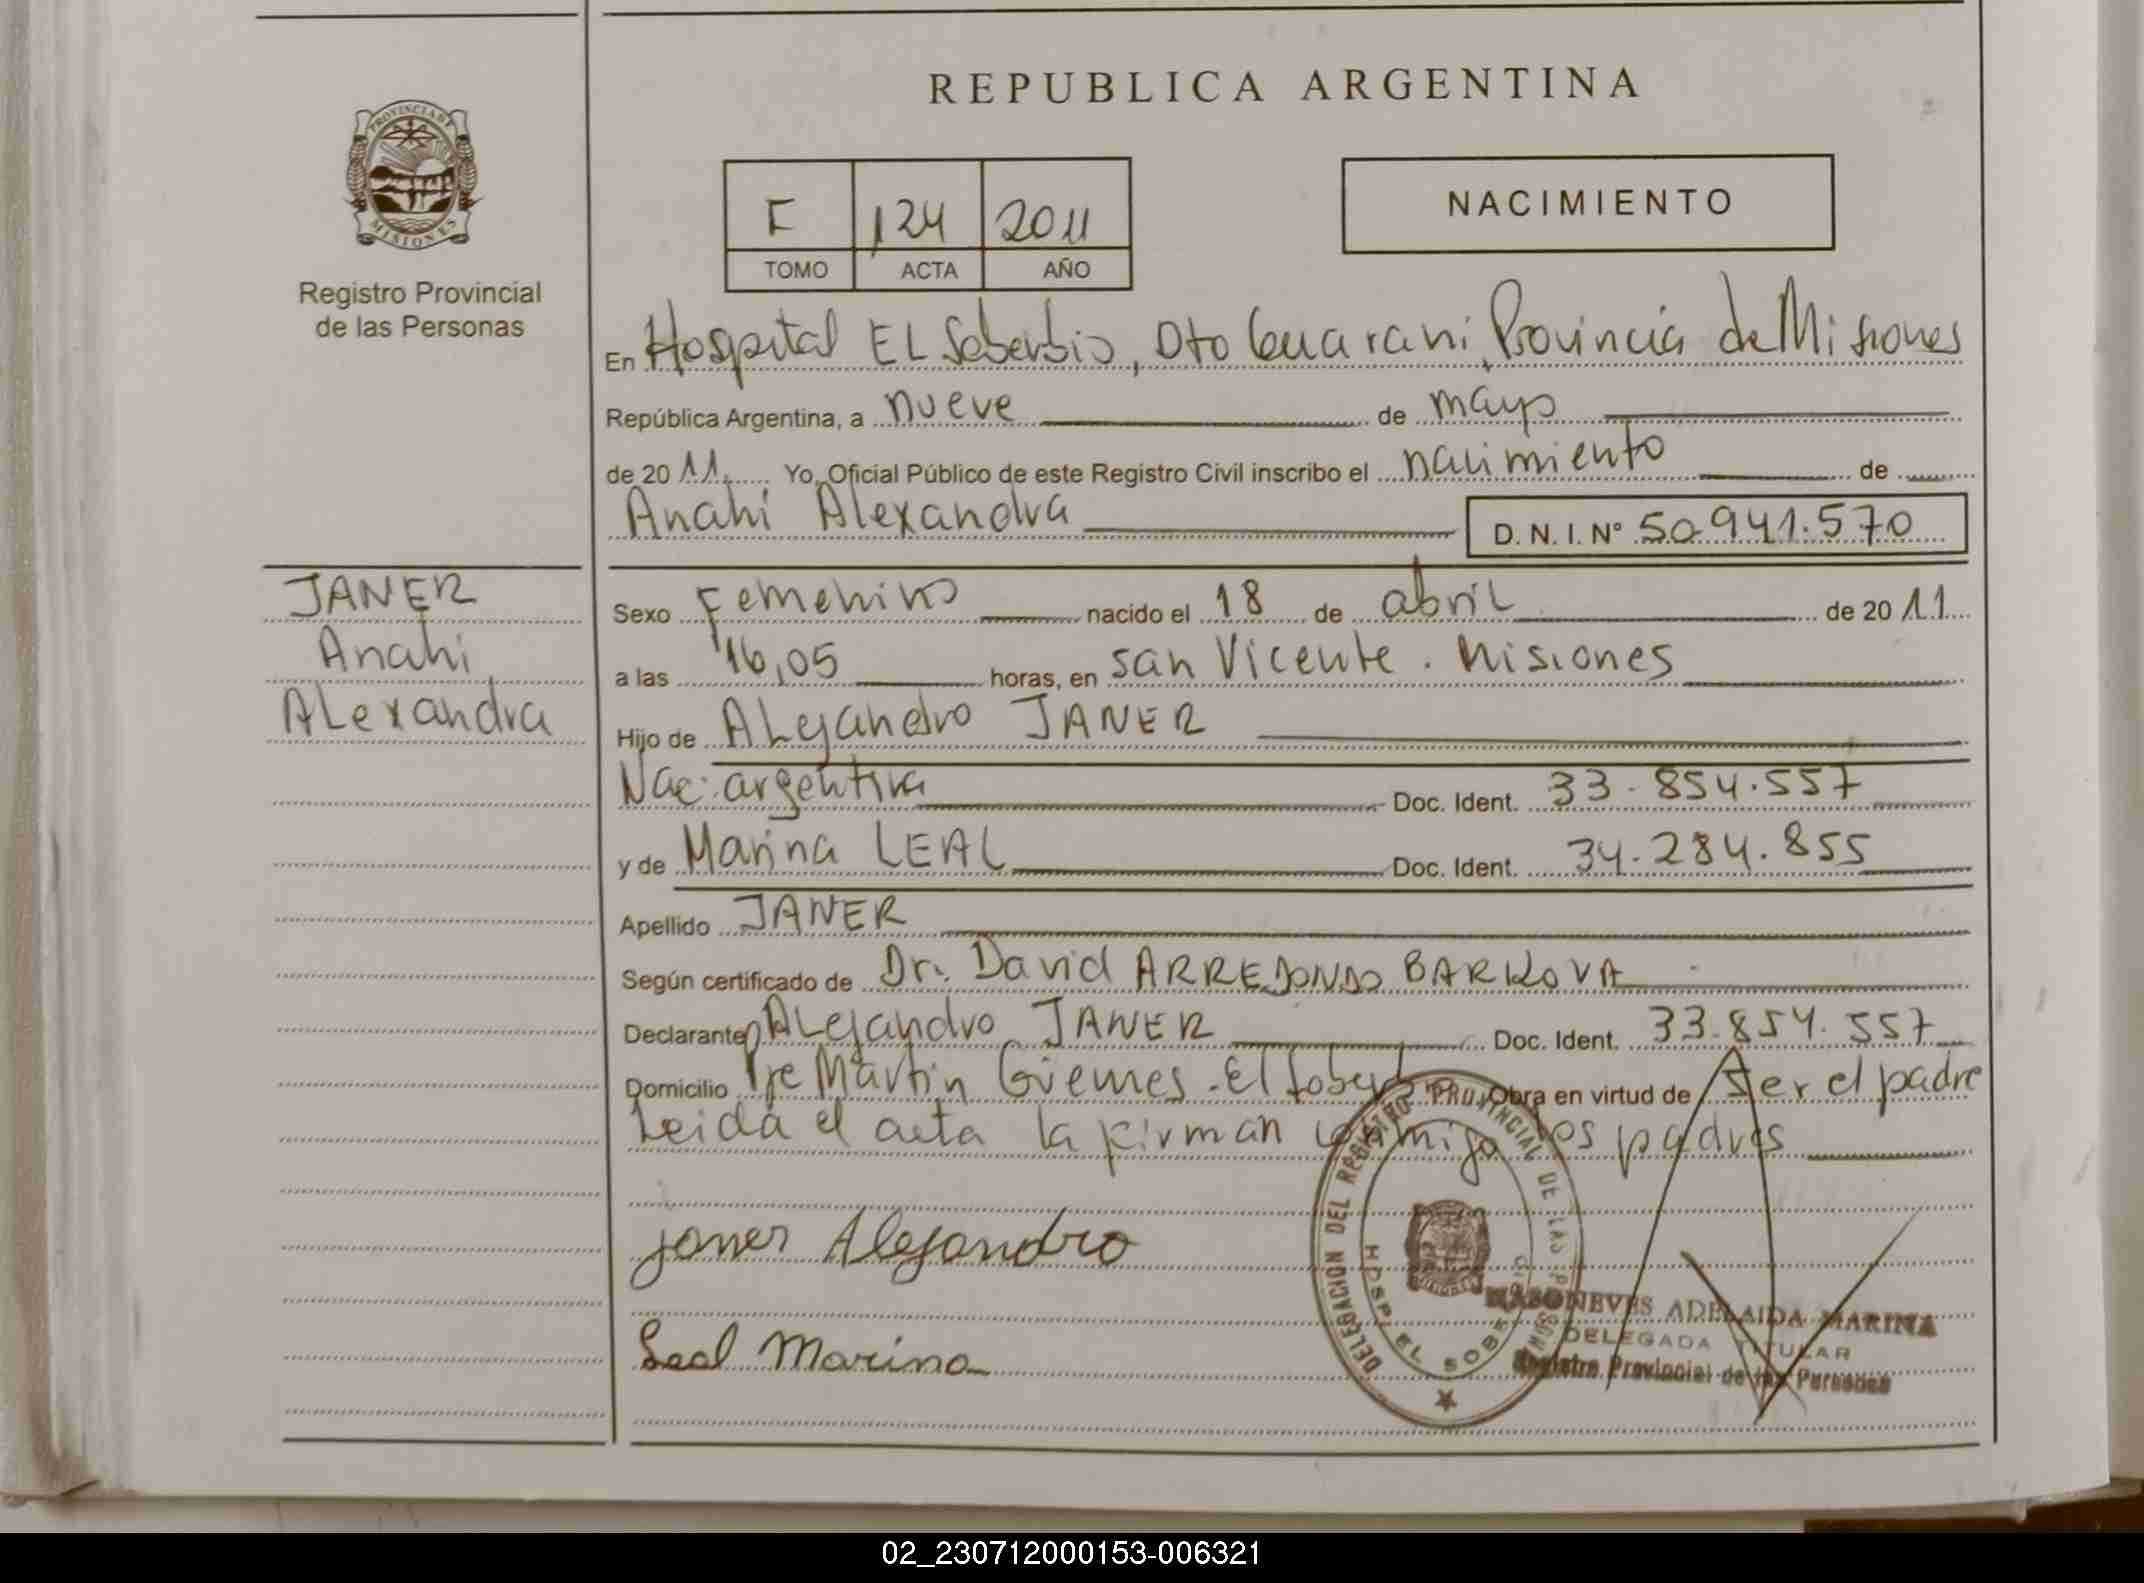 REPUBLICA ARGENTINA
PROVINCIA DE MISIONES
Registro Provincial
de las Personas
F 124 2011
TOMO ACTA AÑO
NACIMIENTO
En Hospital EL Soberbio, Dto Guarani, Provincia de Misiones
República Argentina, a nueve de mayo
de 2011. Yo, Oficial Público de este Registro Civil inscribo el nacimiento de
Anahi Alexandra D. N. I. Nº 50.941.570
JANER
Anahi
ALexandra
Sexo Femenino nacido el 18 de abril de 2011
a las 16,05 horas, en San Vicente. Misiones
Hijo de ALejandro JANER
Nac: argentina Doc. Ident. 33.854.557
y de Marina LEAL Doc. Ident. 34.284.855
Apellido JANER
Según certificado de Dr. David ARREDONDO BARKOVA
Declarante ALejandro JANER Doc. Ident. 33.854.557
Domicilio Pje Martin Güemes - El Soberb Obra en virtud de Ser el padre
Leida el acta la firman conmigo los padres
janer Alejandro
Leal Marina
DELEGACION DEL REGISTRO PROVINCIAL DE LAS PERSONAS
HOSP. EL SOBERBIO
ADELAIDA MARINA
DELEGADA TITULAR
Registro Provincial de las Personas
02_230712000153-006321